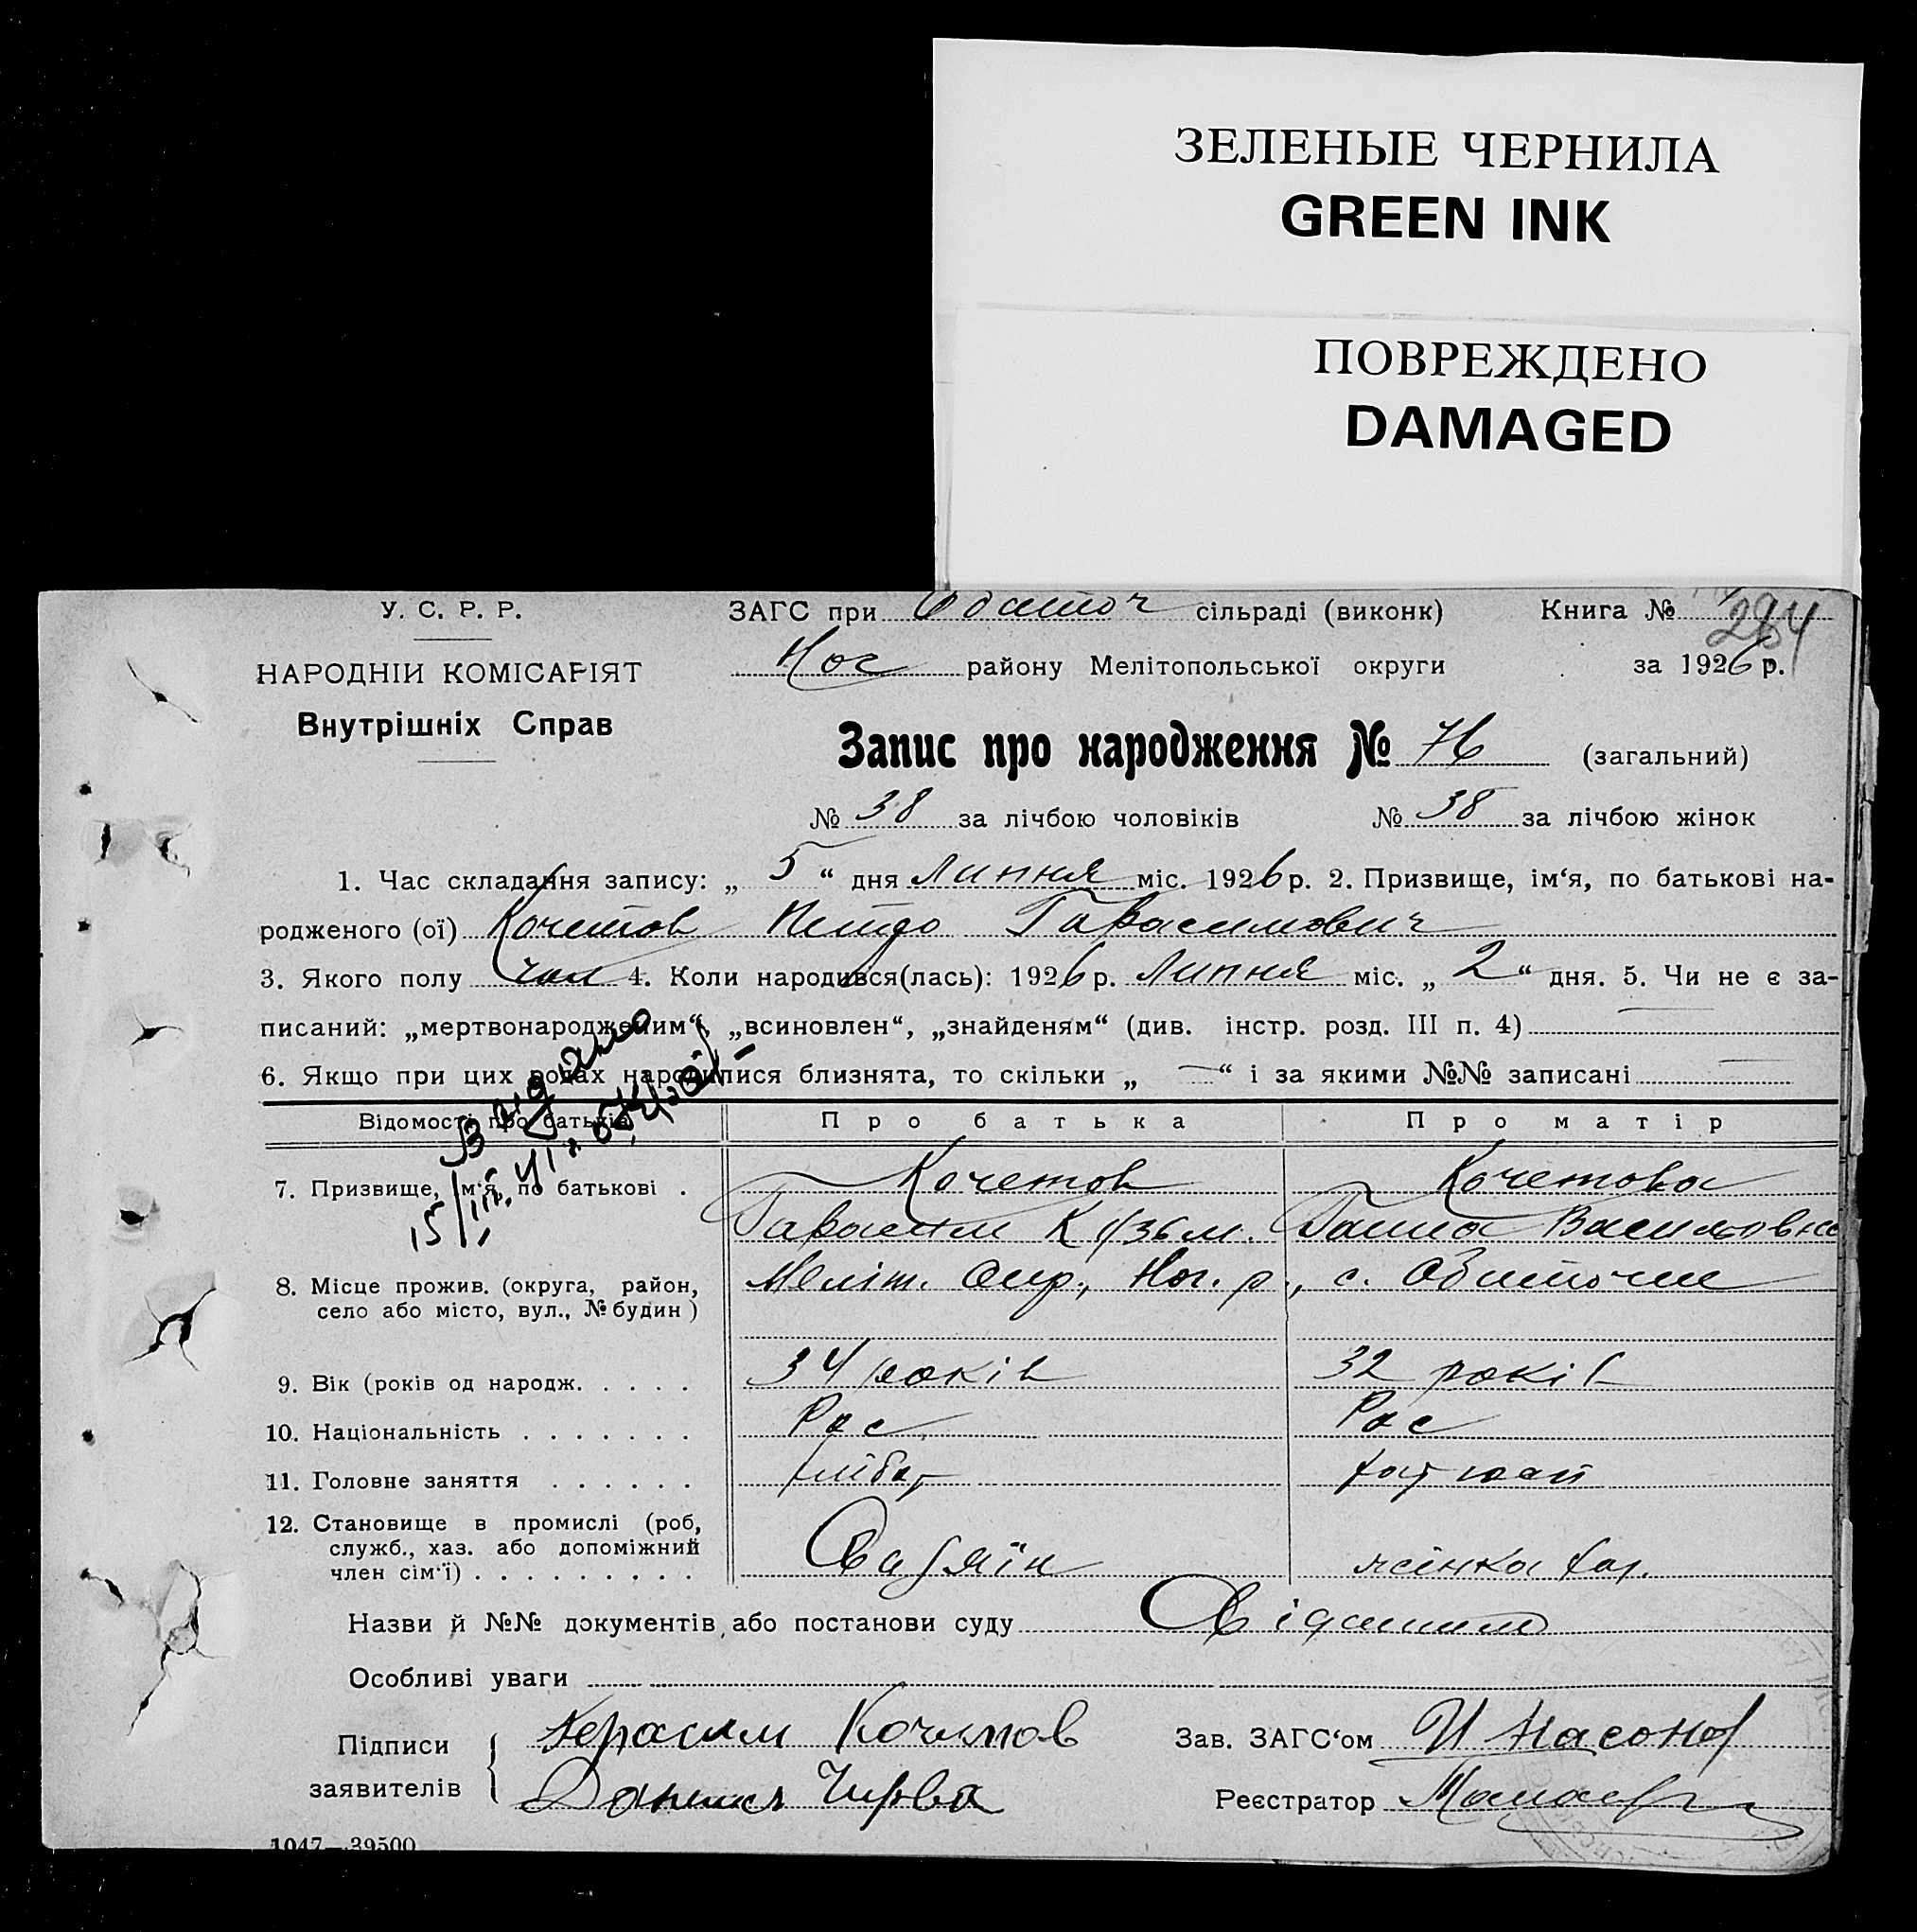 ЗЕЛЕНЫЕ ЧЕРНИЛА
GREEN INK
ПОВРЕЖДЕНО
DAMAGED
У. С. Р. Р. ЗАГС при сільраді (виконк) Книга №
284
НАРОДНІИ КОМІСАРІЯТ Ног району Мелітопольської округи за 1926 р.
Внутрішніх Справ
Запис про народження № 76 (загальний)
№ 38 за лічбою чоловіків № 38 за лічбою жінок
1. Час складання запису: „ 5 “ дня Липня міс. 1926 р. 2. Призвище, ім‘я, по батькові на-
родженого (ої) Кочетов Петро Гарасимович
3. Якого полу чол 4. Коли народився(лась): 1926 р. Липня міс. „ 2 “ дня. 5. Чи не є за-
писаний: „мертвонародженим“, „всиновлен“, „знайденям“ (див. інстр. розд. III п. 4)
6. Якщо при цих родах народилися близнята, то скільки „ — “ і за якими №№ записані
Відомості про батьків Про батька Про матір
7. Призвище, ім‘я, по батькові . Кочетов Кочетова
Гарасим Кузьм. Ганна Васильовна
8. Місце прожив. (округа, район, Меліт. Окр., Ног. р., с. Обиточне
село або місто, вул., № будин )
9. Вік (років од народж. . . . . 34 років 32 років
10. Національність . . . . . . . Рос. Рос
11. Головне заняття . . . . . . хлібор
12. Становище в промислі (роб,
служб., хаз. або допоміжний
член сім‘ї) . . . . . . . . . Хазяїн жінка хаз.
Назви й №№ документів, або постанови суду
Особливі уваги
Підписи заявителів { Герасим Кочетов Зав. ЗАГС‘ом И Насонов
Данило Чирва Реєстратор
1047—39500